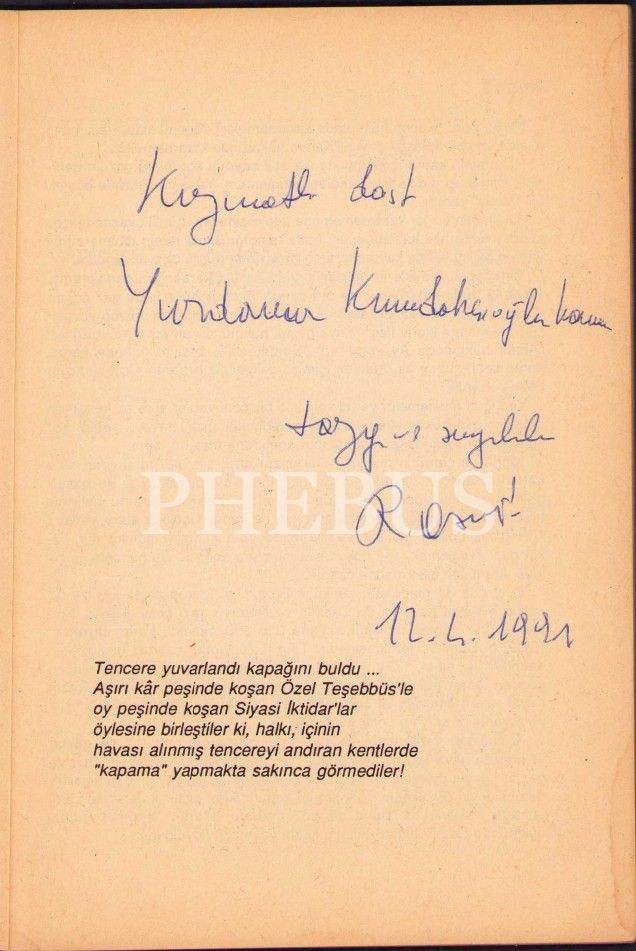 Kıymetli dost
Yurdanur
saygı ve sevgilerle
PHEBUS
12.4.1991
Tencere yuvarlandı kapağını buldu ...
Aşırı kâr peşinde koşan Özel Teşebbüs'le
oy peşinde koşan Siyasi İktidar'lar
öylesine birleştiler ki, halkı, içinin
havası alınmış tencereyi andıran kentlerde
"kapama" yapmakta sakınca görmediler!